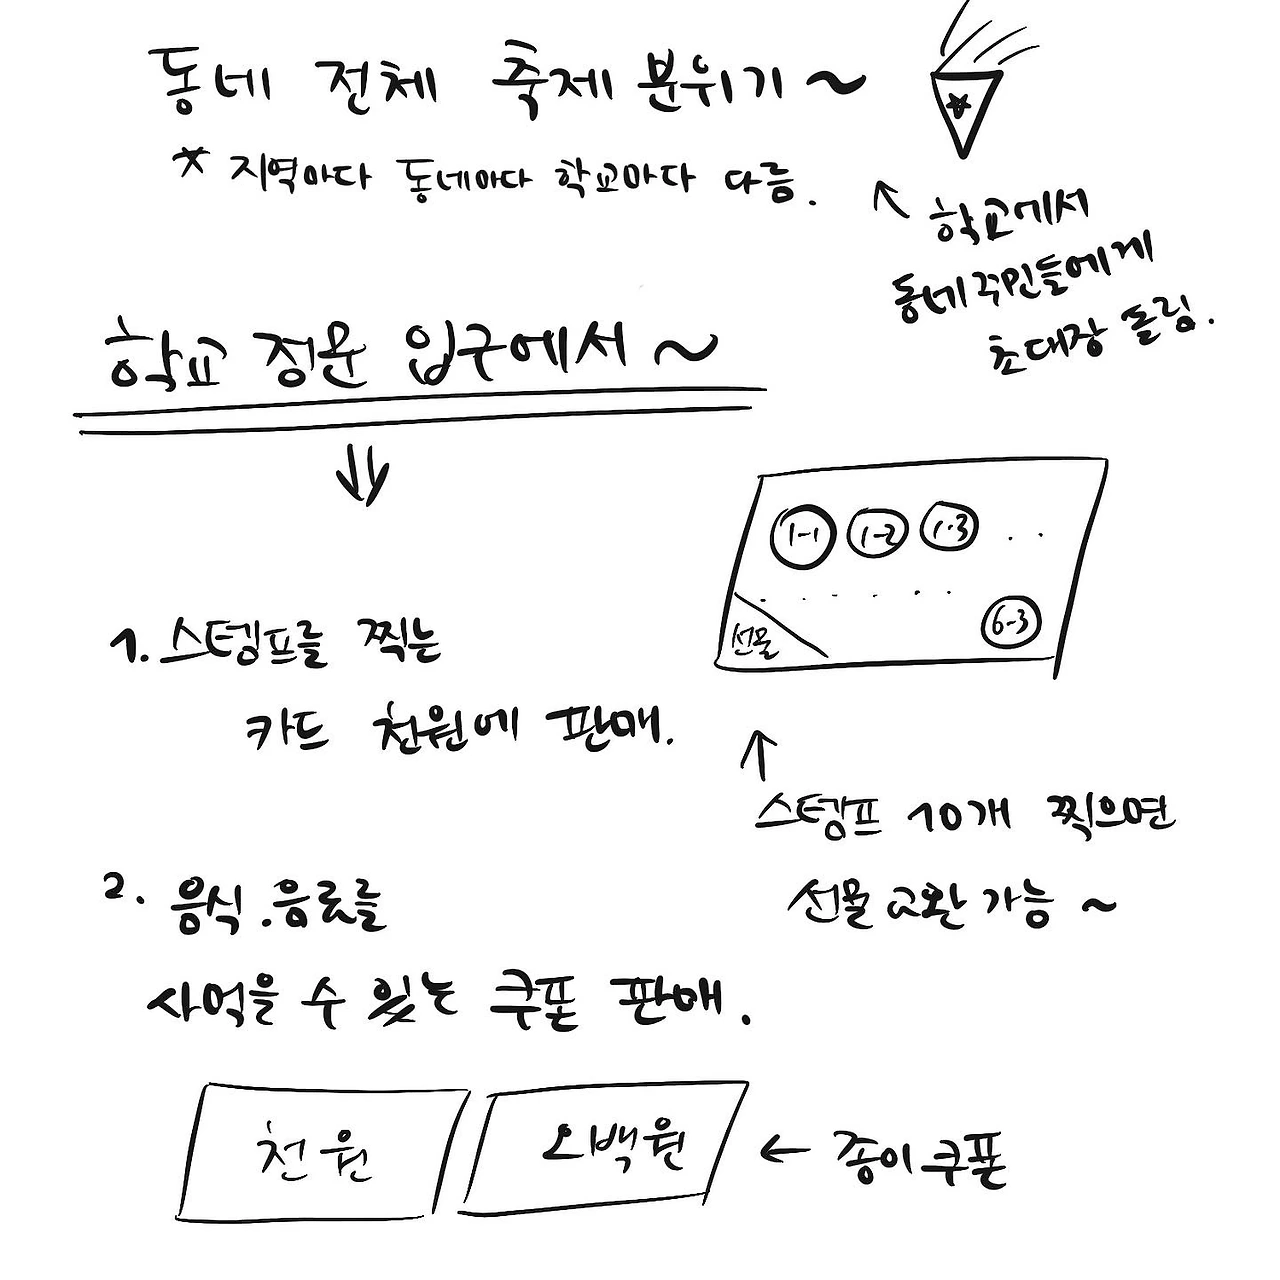 동네 전체 축제 분위기~
* 지역마다 동네마다 학교마다 다름.
↖ 학교에서
동네주민들에게
초대장 돌림.
학교 정문 입구에서~
1-1 1-2 1-3 . .
. . . . . .
6-3
선물
1. 스템프를 찍는
카드 천원에 판매.
↑
스템프 10개 찍으면
선물 교환 가능~
2. 음식.음료를
사먹을 수 있는 쿠폰 판매.
천원 오백원 ← 종이쿠폰